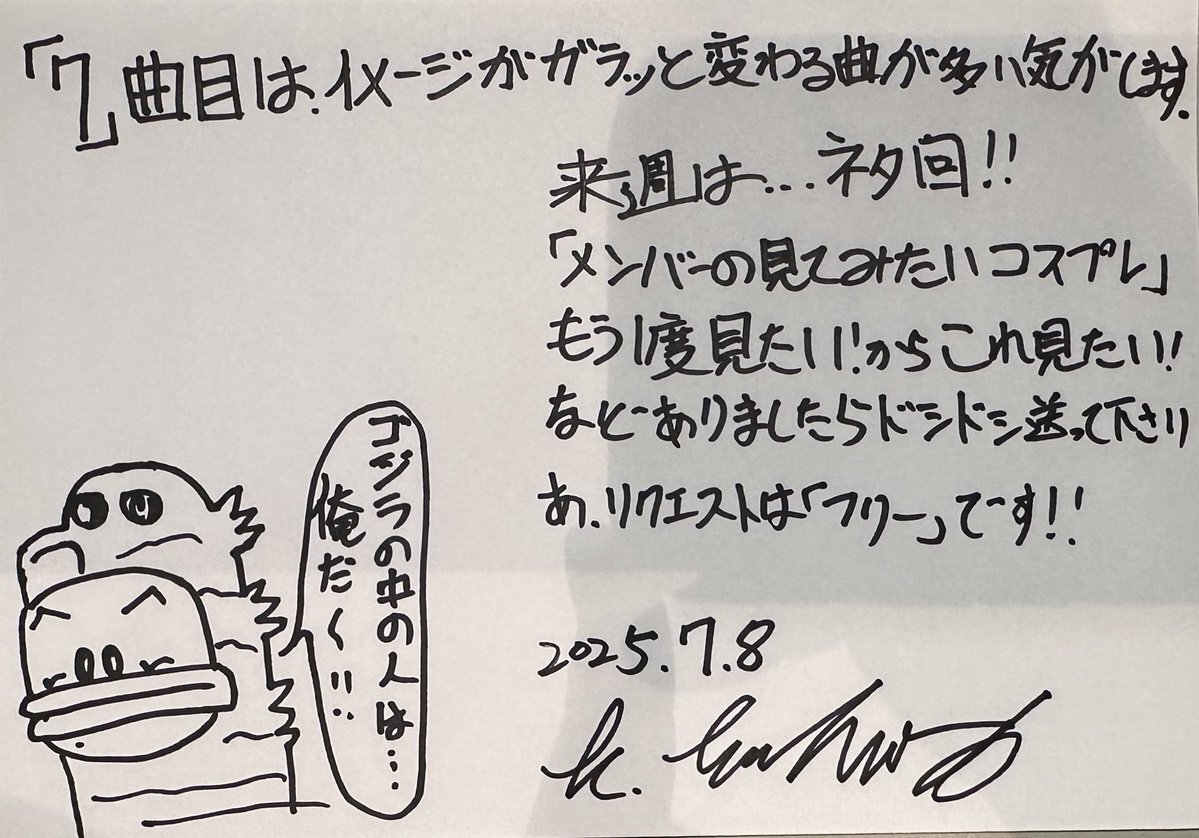 「7」曲目は、イメージがガラッと変わる曲が多い気がします.
来週は...ネタ回!!
「メンバーの見てみたいコスプレ」
もう1度見たい!からこれ見たい!
などありましたらドシドシ送って下さい
あ、リクエストは「フリー」です!!
ゴジラの中の人は…
俺だく!!
2025.7.8
K.